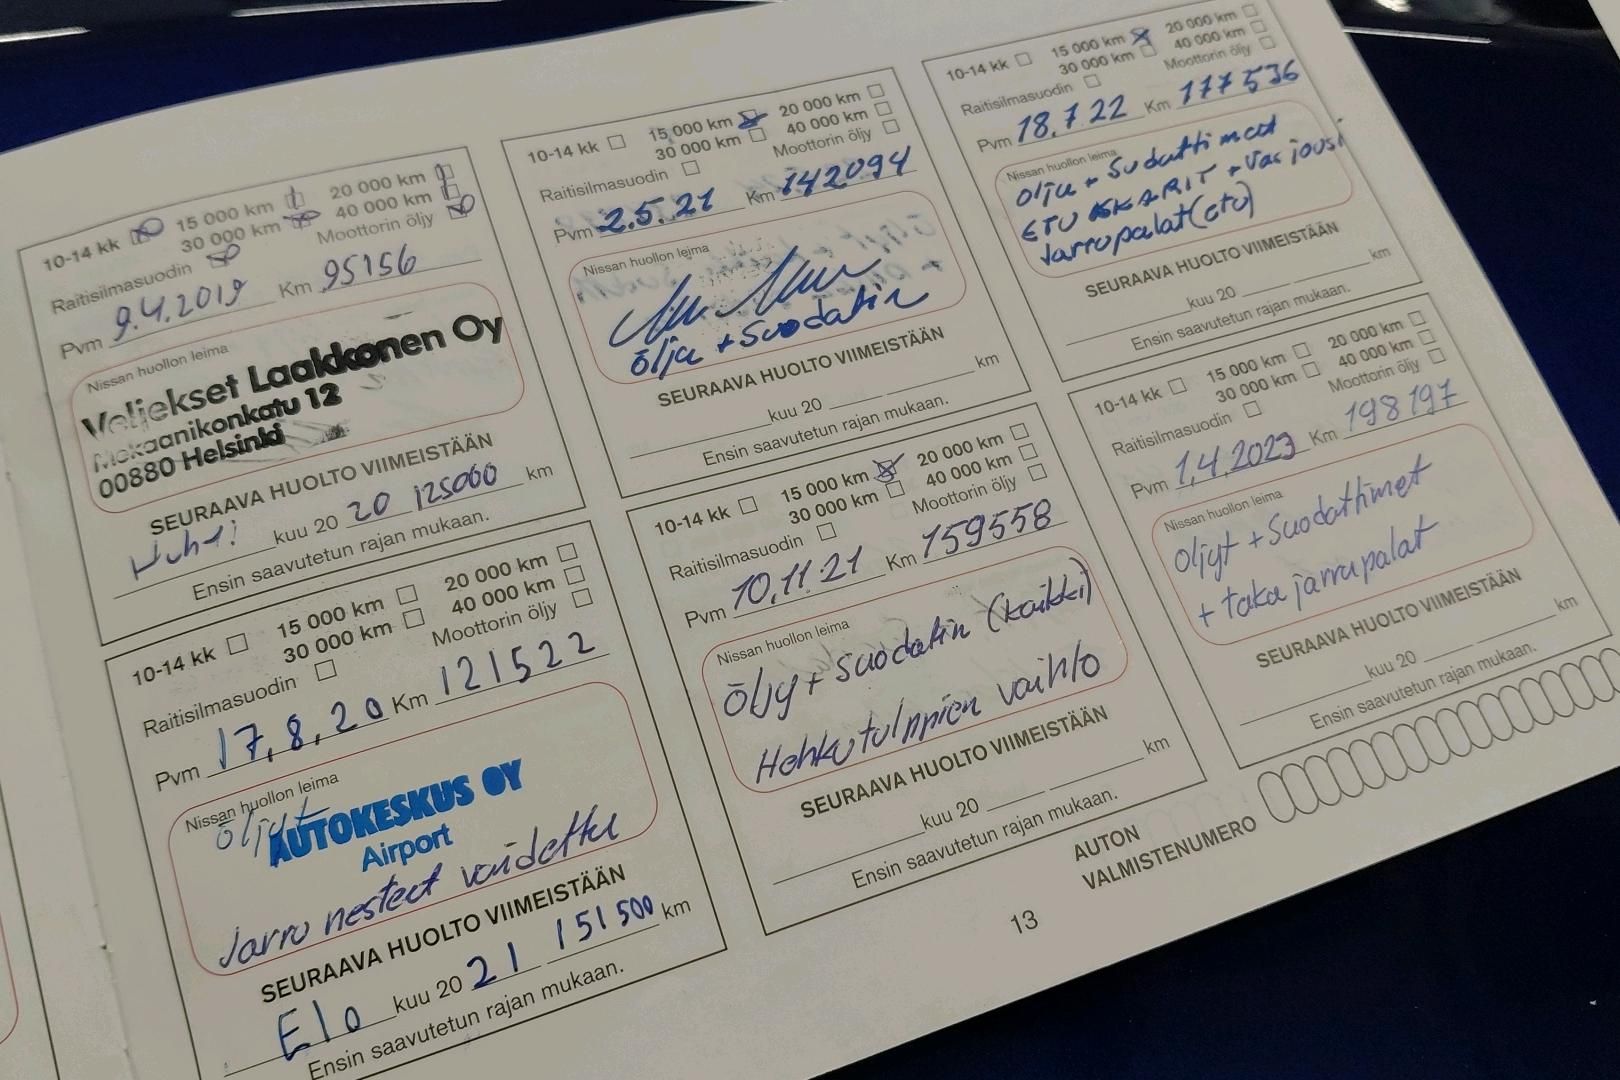 10-14 kk
15 000 km
20 000 km
30 000 km
40 000 km
Raitisilmasuodin
Moottorin öljy
Pvm 9.4.2019 Km 95156
Nissan huollon leima
Veljekset Laakkonen Oy
Mekaanikonkatu 12
00880 Helsinki
SEURAAVA HUOLTO VIIMEISTÄÄN
Huhti kuu 20 20 125000 km
Ensin saavutetun rajan mukaan.
10-14 kk
15 000 km
20 000 km
30 000 km
40 000 km
Raitisilmasuodin
Moottorin öljy
Pvm 17.8.20 Km 121522
Nissan huollon leima
öljyt
AUTOKESKUS OY
Airport
Jarru nesteet vaidettu
SEURAAVA HUOLTO VIIMEISTÄÄN
Elo kuu 20 21 151500 km
Ensin saavutetun rajan mukaan.
10-14 kk
15 000 km
20 000 km
30 000 km
40 000 km
Raitisilmasuodin
Moottorin öljy
Pvm 2.5.21 Km 142094
Nissan huollon leima
ölju + suodatin
SEURAAVA HUOLTO VIIMEISTÄÄN
kuu 20 km
Ensin saavutetun rajan mukaan.
10-14 kk
15 000 km
20 000 km
30 000 km
40 000 km
Raitisilmasuodin
Moottorin öljy
Pvm 10.11.21 Km 159558
Nissan huollon leima
öljy + suodatin (kaikki)
Hehkutulppien vaihto
SEURAAVA HUOLTO VIIMEISTÄÄN
kuu 20 km
Ensin saavutetun rajan mukaan.
10-14 kk
15 000 km
20 000 km
30 000 km
40 000 km
Raitisilmasuodin
Moottorin öljy
Pvm 18.7.22 Km 177536
Nissan huollon leima
ölju + Suodattimet
ETU ISKARIT + Vas jousi
Jarrupalat (etu)
SEURAAVA HUOLTO VIIMEISTÄÄN
kuu 20 km
Ensin saavutetun rajan mukaan.
10-14 kk
15 000 km
20 000 km
30 000 km
40 000 km
Raitisilmasuodin
Moottorin öljy
Pvm 1.4.2023 Km 198197
Nissan huollon leima
Öljyt + Suodattimet
+ taka jarrupalat
SEURAAVA HUOLTO VIIMEISTÄÄN
kuu 20 km
Ensin saavutetun rajan mukaan.
AUTON
VALMISTENUMERO
13